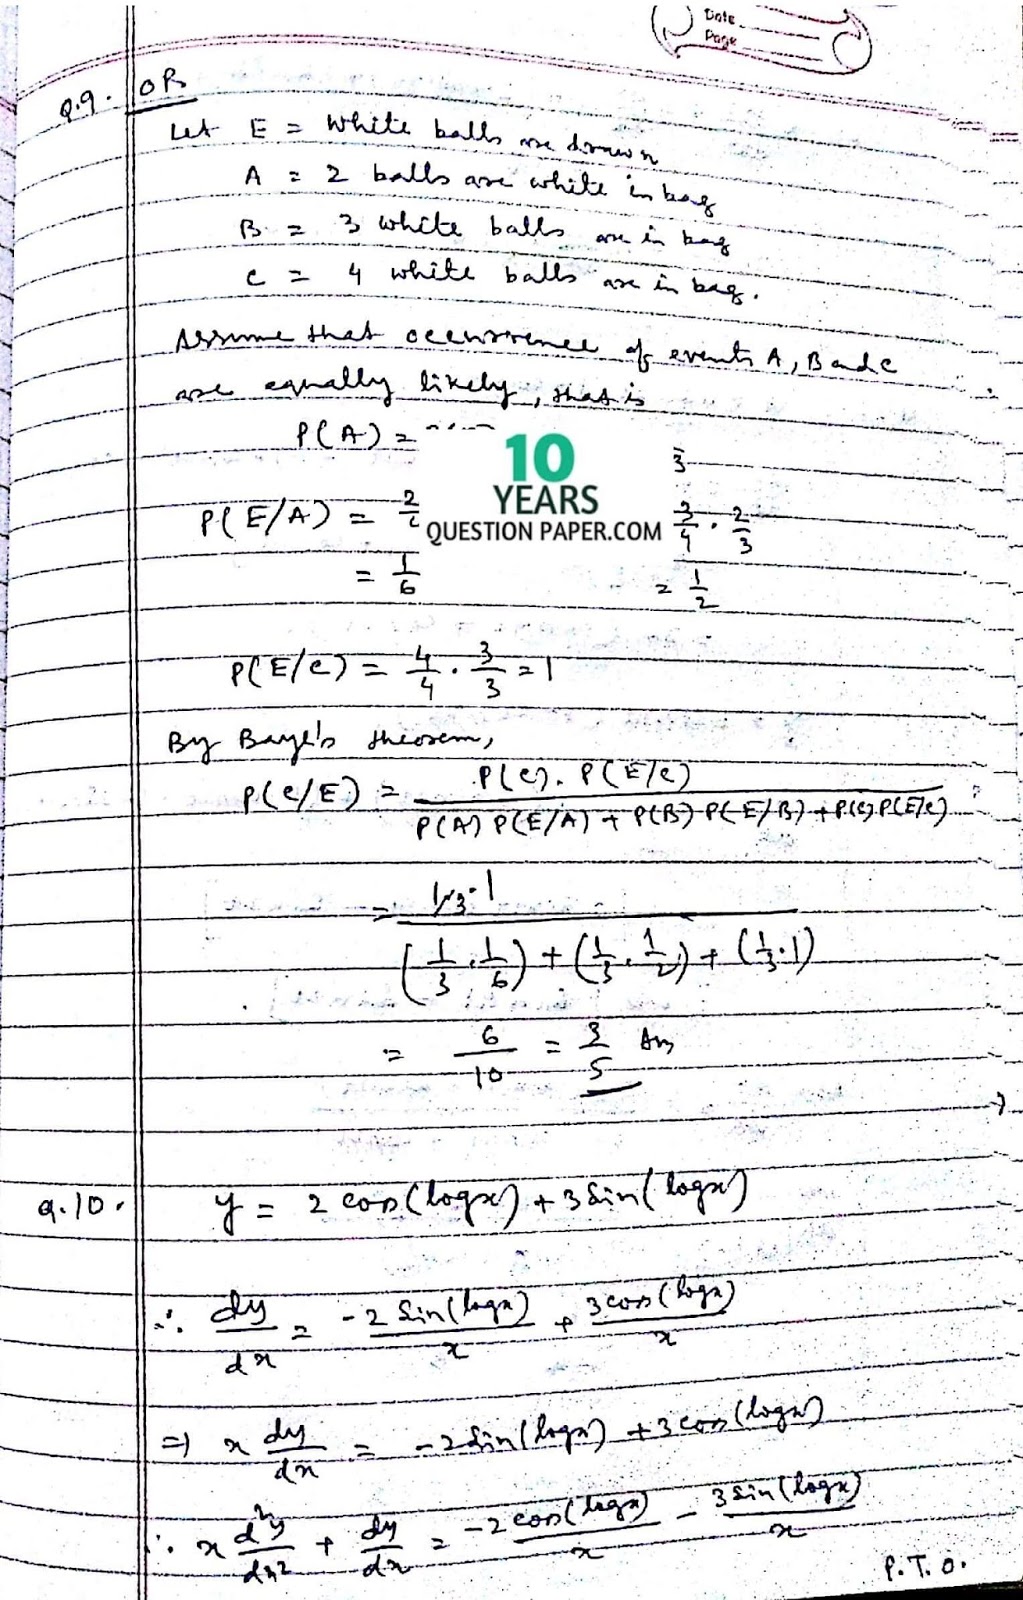 Date
Page
Q.9. OR
Let E = White balls are drawn
A = 2 balls are white in bag
B = 3 white balls are in bag
C = 4 white balls are in bag.
Assume that occurrence of events A, B and C
are equally likely, that is
P(A) =
3
10
YEARS
QUESTION PAPER.COM
P(E/A) = 2/ 3/4 . 2/3
= 1/6 = 1/2
P(E/C) = 4/4 . 3/3 = 1
By Baye's theorem,
P(C/E) = P(C). P(E/C) / P(A) P(E/A) + P(B) P(E/B) + P(C) P(E/C)
= 1/3 . 1 / (1/3 . 1/6) + (1/3 . 1/2) + (1/3 . 1)
= 6/10 = 3/5 Ans
Q.10. y = 2 cos(logx) + 3 Sin(logx)
∴ dy/dx = -2 Sin(logx)/x + 3cos(logx)/x
⇒ x dy/dx = -2Sin(logx) + 3cos(logx)
∴ x d²y/dx² + dy/dx = -2cos(logx)/x - 3Sin(logx)/x
P.T.O.